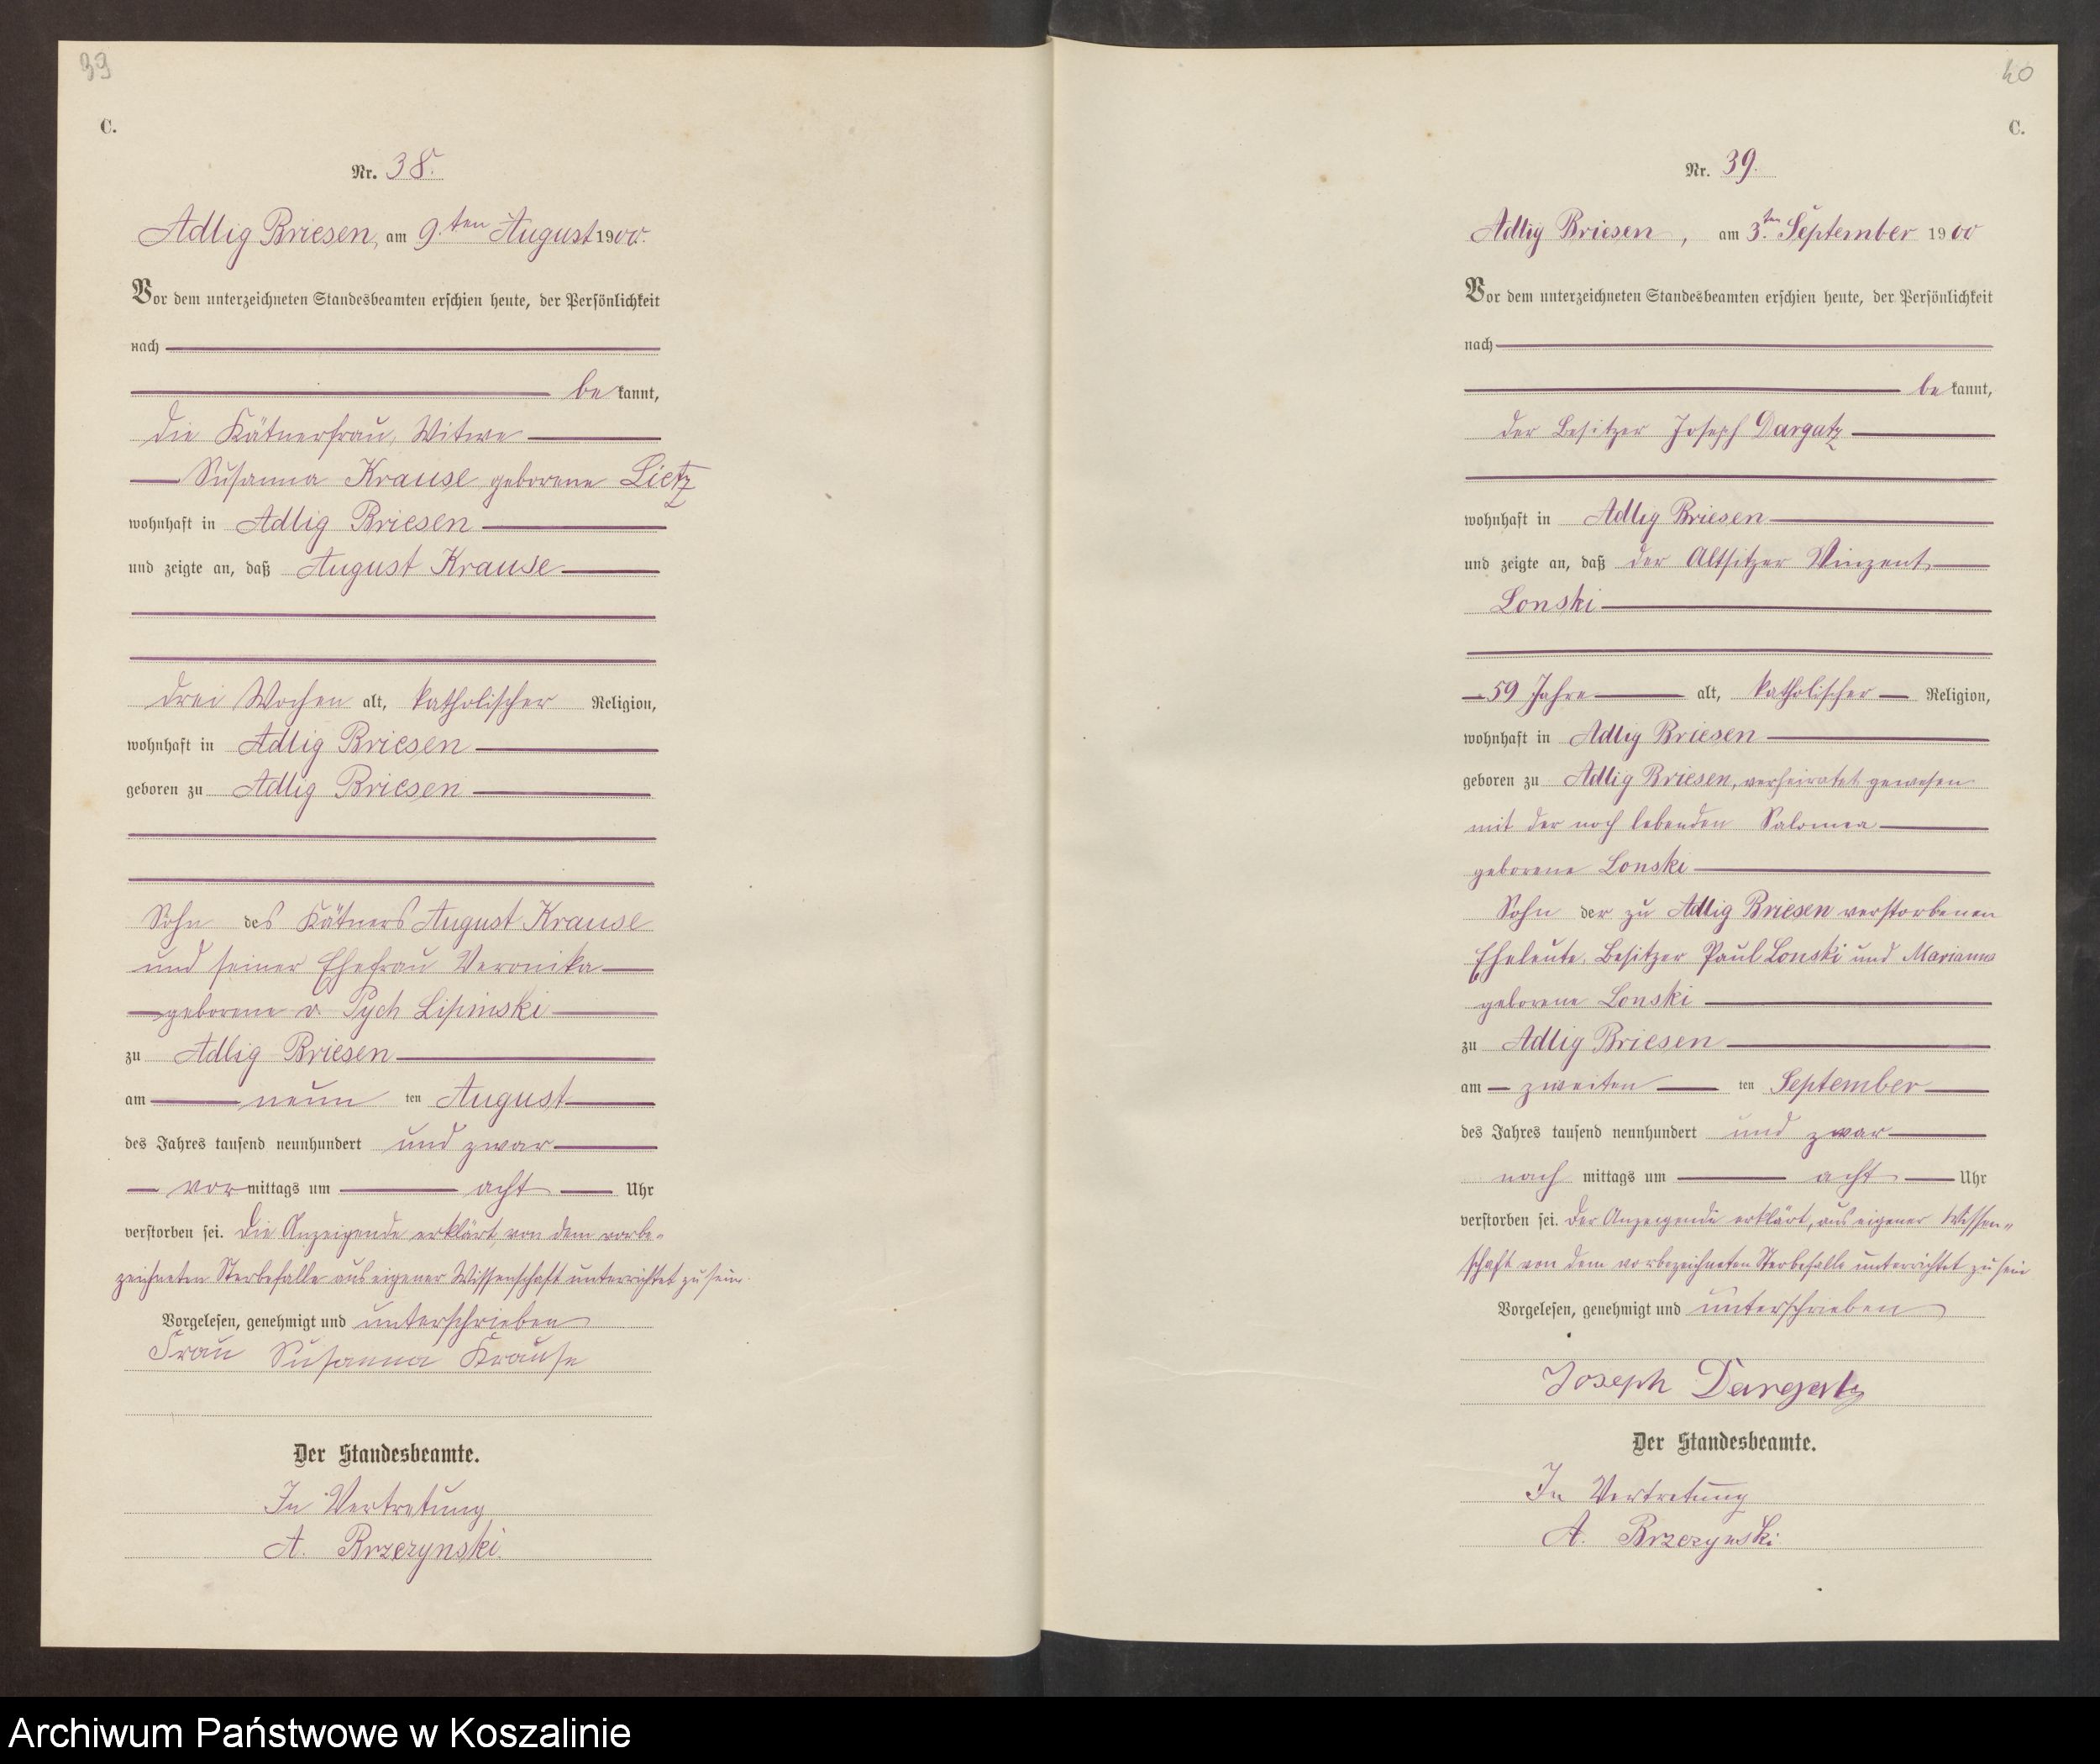 39
C.
Nr. 38.
Adlig Briesen, am 9.ten August 1900.
Vor dem unterzeichneten Standesbeamten erschien heute, der Persönlichkeit
nach
bekannt,
die Kätnerfrau, Witwe
Susanna Krause geborene Lietz
wohnhaft in Adlig Briesen
und zeigte an, daß August Krause
drei Wochen alt, katholischer Religion,
wohnhaft in Adlig Briesen
geboren zu Adlig Briesen
Sohn des Kätners August Krause
und seiner Ehefrau Veronika
geborene v. Pych Lipinski
zu Adlig Briesen
am neun ten August
des Jahres tausend neunhundert und zwar
vormittags um acht Uhr
verstorben sei. Die Anzeigende erklärt, von dem vorbe-
zeichneten Sterbefalle aus eigener Wissenschaft unterrichtet zu sein.
Vorgelesen, genehmigt und unterschrieben
Frau Susanna Krause
Der Standesbeamte.
In Vertretung
A. Brzezynski.
40
C.
Nr. 39.
Adlig Briesen, am 3.ten September 1900
Vor dem unterzeichneten Standesbeamten erschien heute, der Persönlichkeit
nach
bekannt,
der Besitzer Joseph Dargatz
wohnhaft in Adlig Briesen
und zeigte an, daß der Altsitzer Vinzent
Lonski
59 Jahre alt, katholischer Religion,
wohnhaft in Adlig Briesen
geboren zu Adlig Briesen, verheiratet gewesen
mit der noch lebenden Salomea
geborene Lonski
Sohn der zu Adlig Briesen verstorbenen
Eheleute, Besitzer Paul Lonski und Marianna
geborene Lonski
zu Adlig Briesen
am zweiten ten September
des Jahres tausend neunhundert und zwar
nach mittags um acht Uhr
verstorben sei. Der Anzeigende erklärt, aus eigener Wissen-
schaft von dem vorbezeichneten Sterbefalle unterrichtet zu sein
Vorgelesen, genehmigt und unterschrieben
Joseph Dargatz
Der Standesbeamte.
In Vertretung
A. Brzezynski.
Archiwum Państwowe w Koszalinie